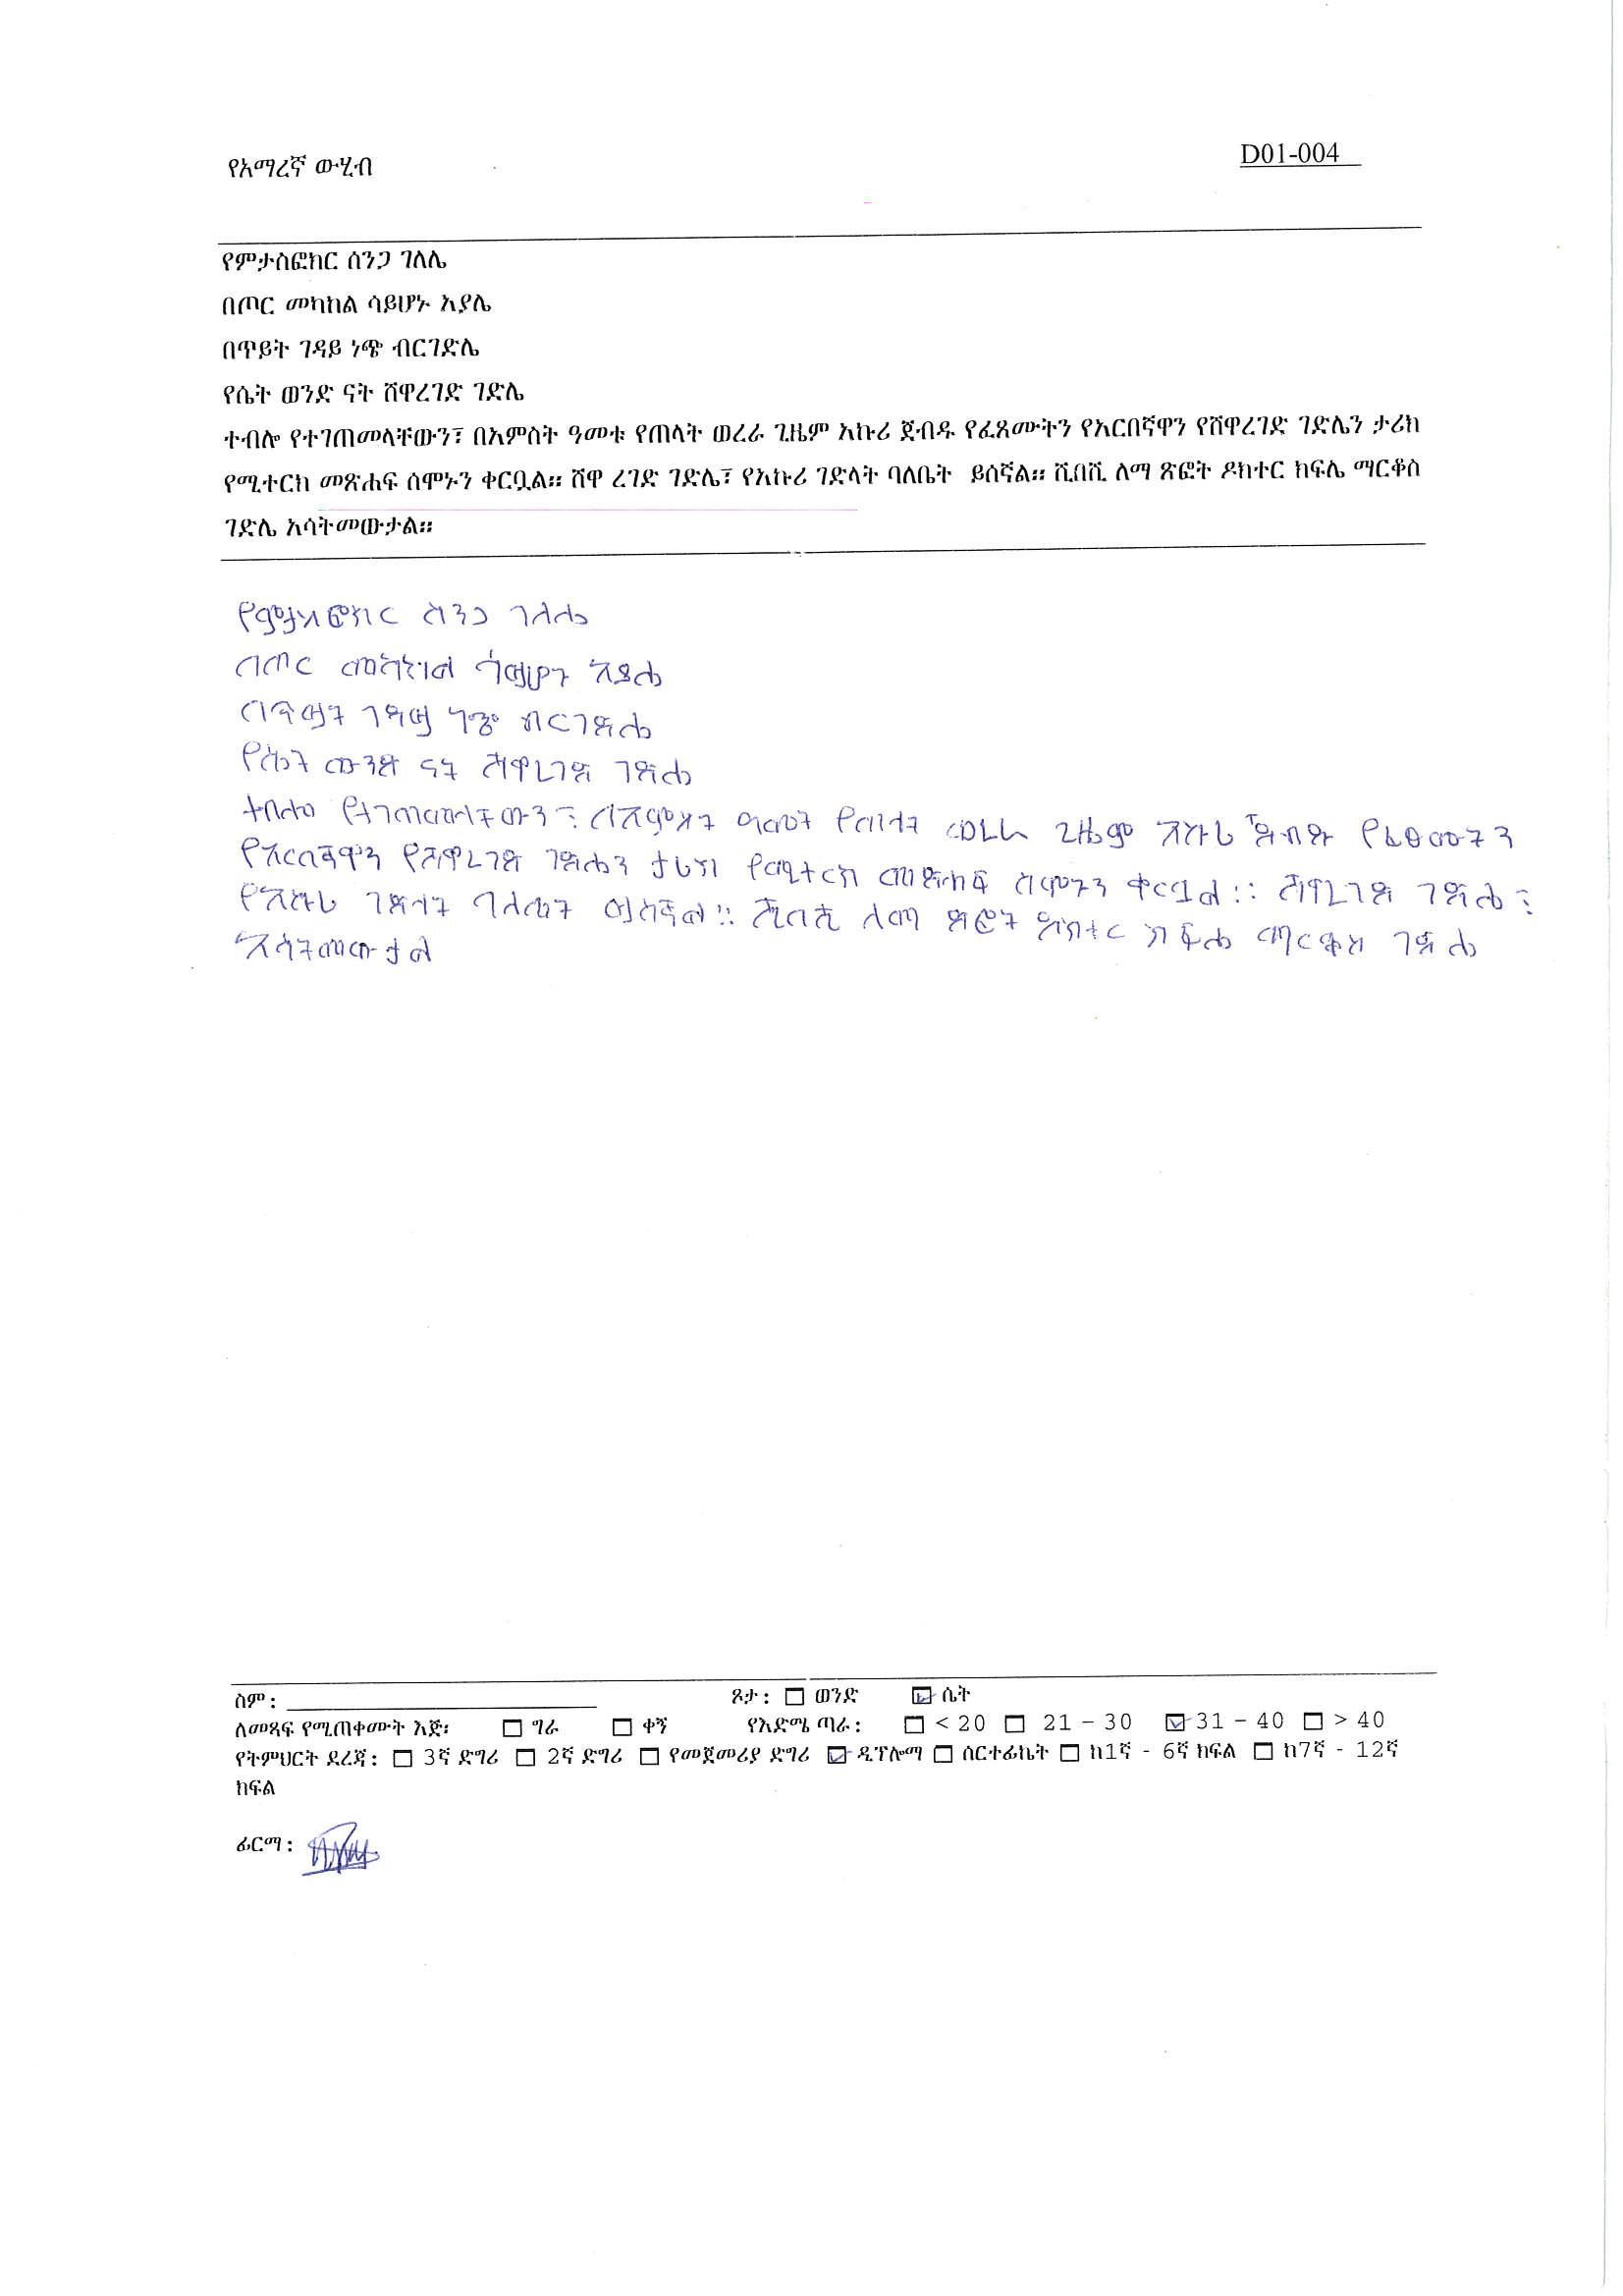 የአማረኛ ውሂብ
D01-004
የምታስፎክር ሰንጋ ገለሌ
በጦር መካከል ሳይሆኑ አያሌ
በጥይት ገዳይ ነጭ ብርገድሌ
የሴት ወንድ ናት ሸዋረገድ ገድሌ
ተብሎ የተገጠመላቸውን፣ በአምስት ዓመቱ የጠላት ወረራ ጊዜም አኩሪ ጀብዱ የፈጸሙትን የአርበኛዋን የሸዋረገድ ገድሌን ታሪክ
የሚተርክ መጽሐፍ ሰሞኑን ቀርቧል። ሸዋ ረገድ ገድሌ፣ የአኩሪ ገድላት ባለቤት ይሰኛል። ሺበሺ ለማ ጽፎት ዶክተር ክፍሌ ማርቆስ
ገድሌ አሳትመውታል።
የምታስፎክር ሰንጋ ገለሌ
በጦር መካከል ሳይሆኑ አያሌ
በጥይት ገዳይ ነጭ ብርገድሌ
የሴት ወንድ ናት ሸዋረገድ ገድሌ
ተብሎ የተገጠመላቸውን፣ በአምስት ዓመቱ የጠላት ወረራ ጊዜም አኩሪ ጀብዱ የፈፀሙትን
የአርበኛዋን የሸዋረገድ ገድሌን ታሪክ የሚተርክ መጽሐፍ ሰሞኑን ቀርቧል። ሸዋረገድ ገድሌ፣
የአኩሪ ገድላት ባለቤት ይሰኛል። ሺበሺ ለማ ጽፎት ዶክተር ክፍሌ ማርቆስ ገድሌ
አሳትመውታል
ስም:
ጾታ: ወንድ ሴት
ለመጻፍ የሚጠቀሙት እጅ፡ ግራ ቀኝ የእድሜ ጣራ: < 20 21 – 30 31 – 40 > 40
የትምህርት ደረጃ: 3ኛ ድግሪ 2ኛ ድግሪ የመጀመሪያ ድግሪ ዲፕሎማ ሰርተፊኬት ከ1ኛ - 6ኛ ክፍል ከ7ኛ - 12ኛ
ክፍል
ፊርማ: